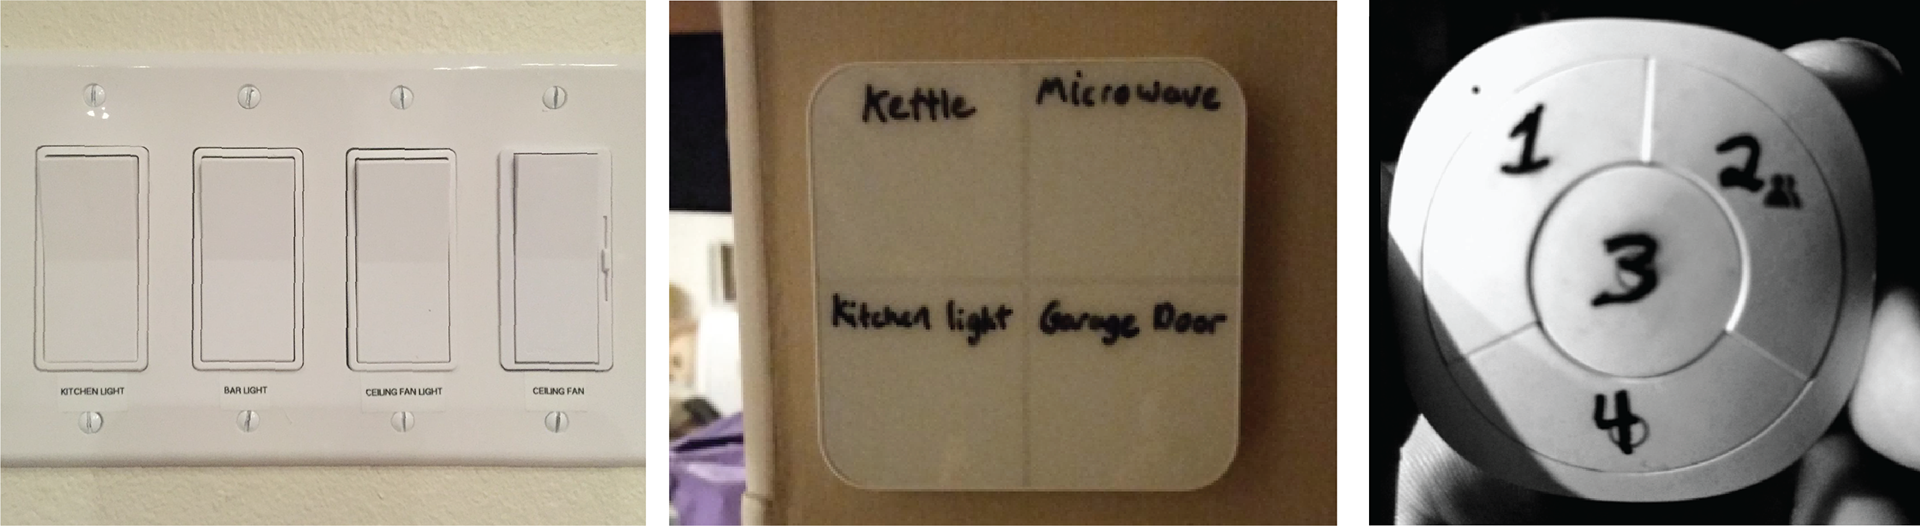 KITCHEN LIGHT
BAR LIGHT
CEILING FAN LIGHT
CEILING FAN
Kettle
Microwave
Kitchen light
Garage Door
1
2
3
4